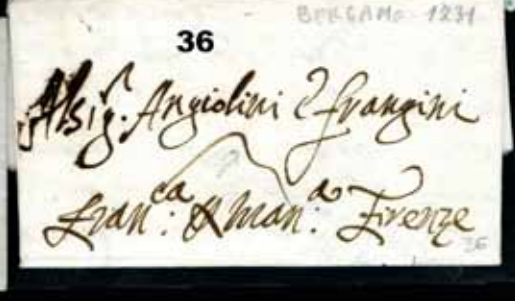 BERGAMO 1231
36
Al Sig.r Angiolini e Frangini
Fran.ca Firenze
36